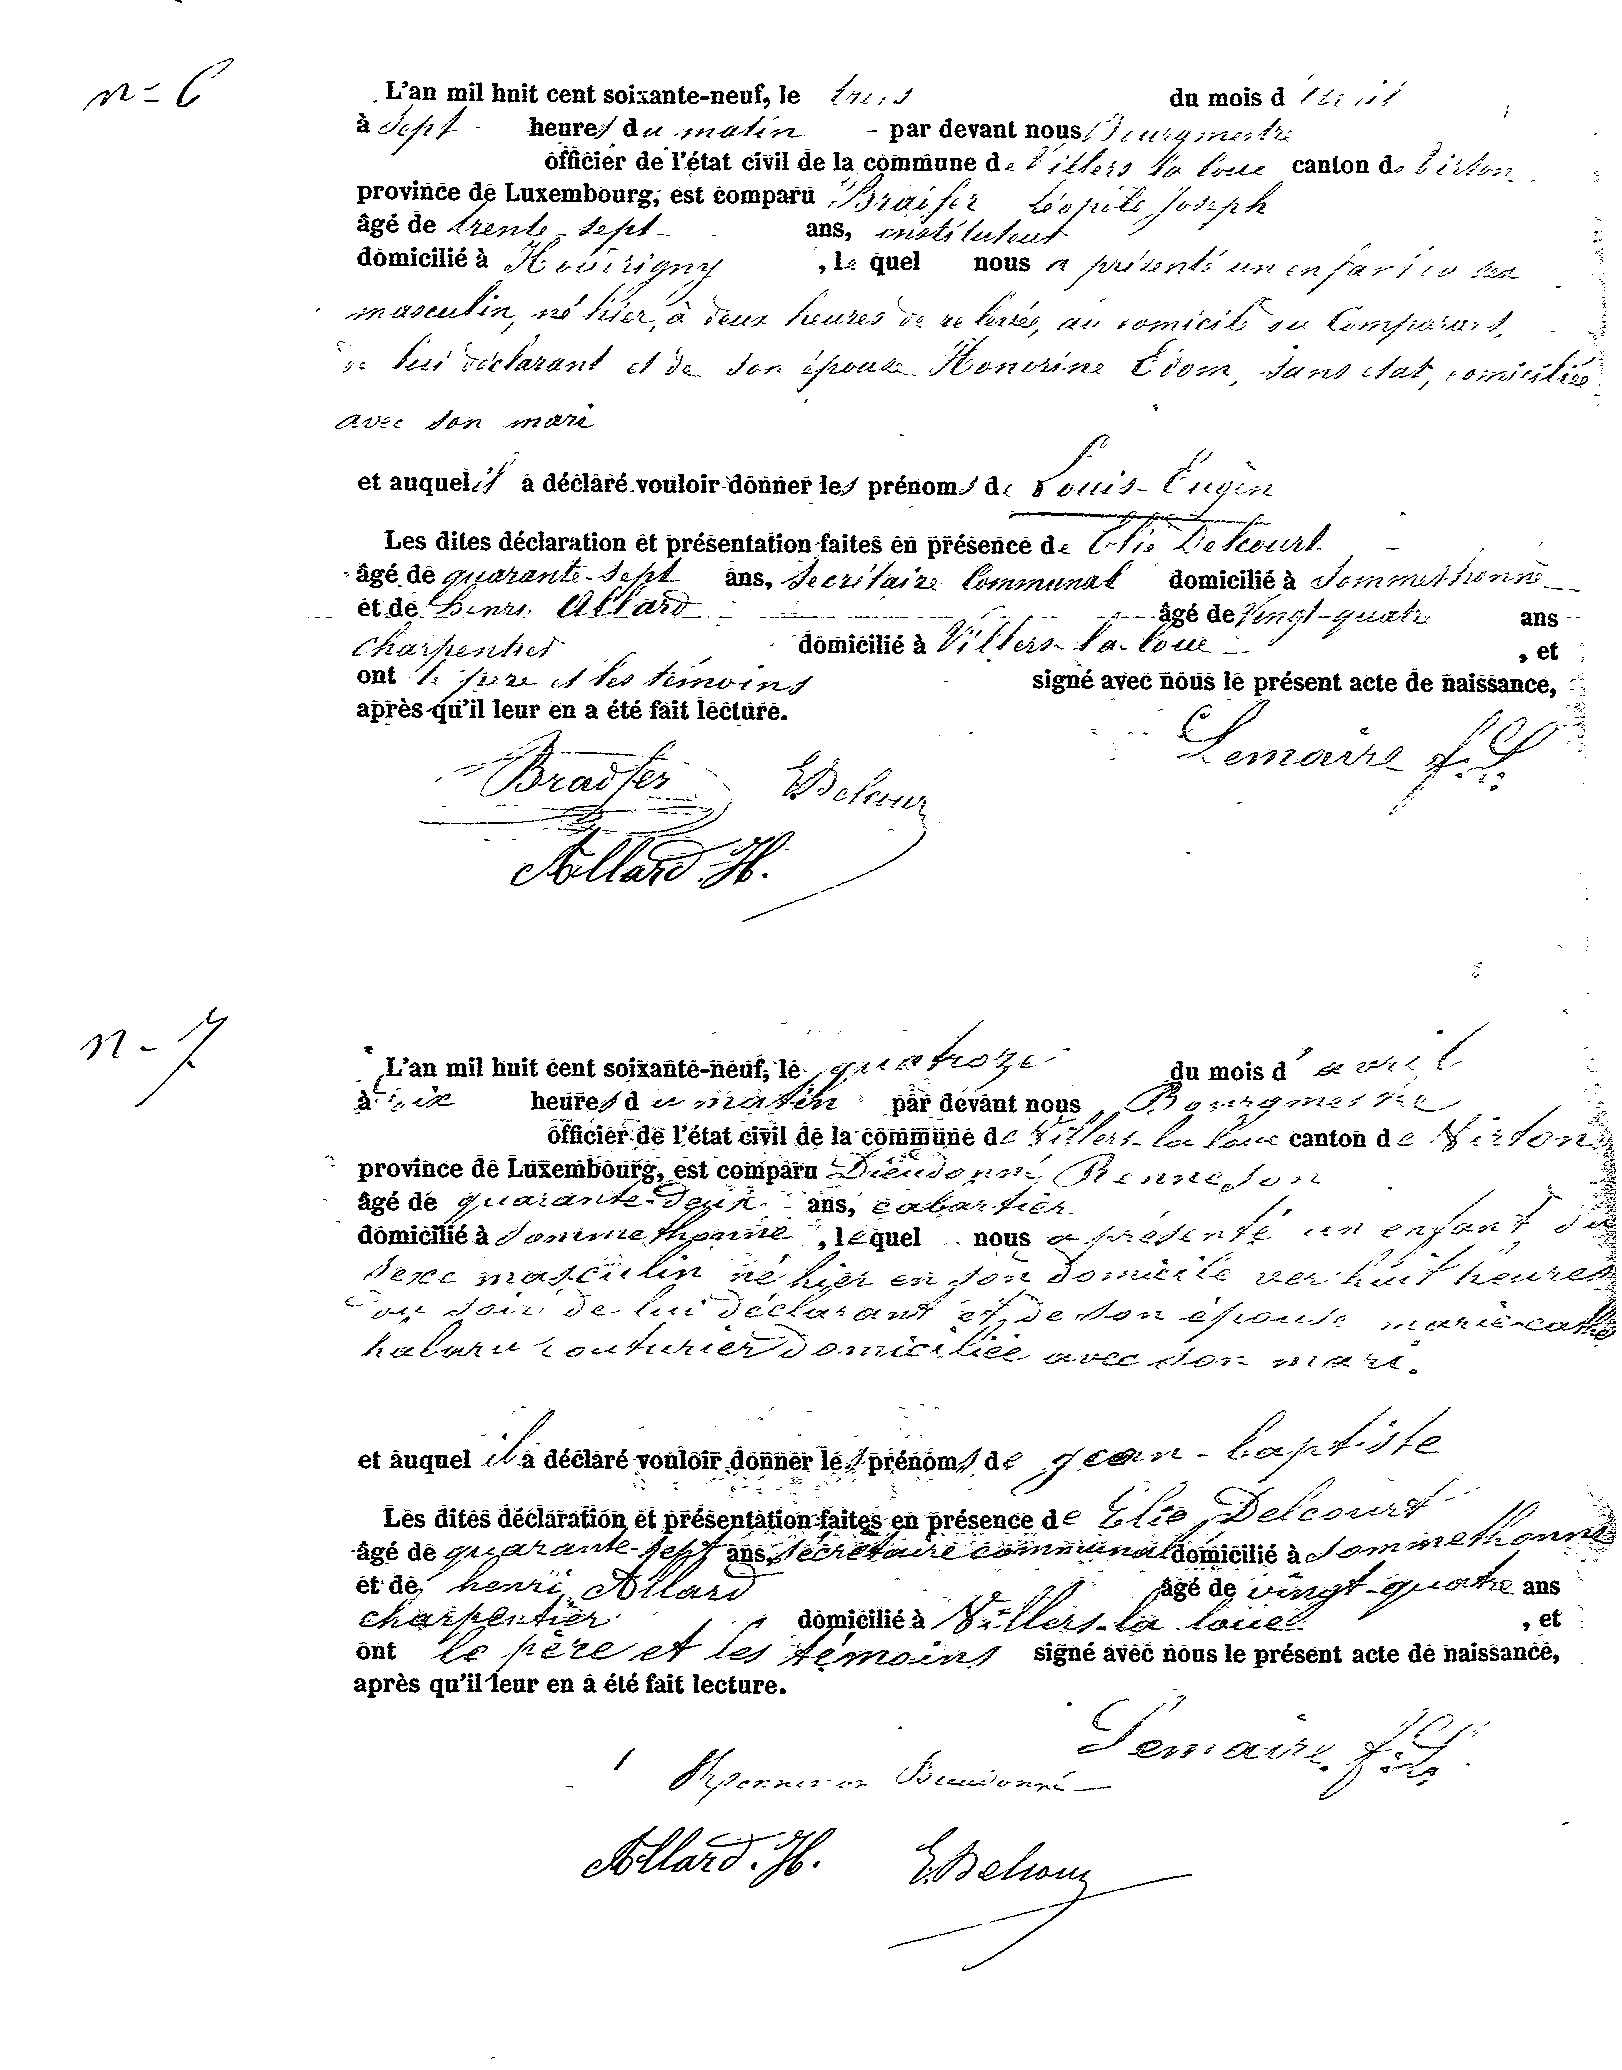 n- 6
L'an mil huit cent soixante-neuf, le trois du mois d'avril
à sept heures du matin par devant nous Bourgmestre
officier de l'état civil de la commune de Villers la loue canton de Virton
province de Luxembourg, est comparu Joseph
âgé de trente-sept ans, instituteur
domicilié à , le quel nous a présenté un enfant du sexe
masculin, né hier, à deux heures de relevée, au domicile du Comparant,
de lui déclarant et de son épouse Honorine Edom, sans état, domiciliée
avec son mari
et auquel il a déclaré vouloir donner les prénoms de Louis-Eugèn
Les dites déclaration et présentation faites en présence de Elie Delcourt
âgé de quarante-sept ans, Secrétaire Communal domicilié à Sommethonne
et de henri Allard âgé de Vingt-quatre ans
charpentier domicilié à Villers-la-loue , et
ont le père et les témoins signé avec nous le présent acte de naissance,
après qu'il leur en a été fait lecture.
Lemaire f.L.
Bradfer EDelcour
Allard.H.
n- 7
L'an mil huit cent soixante-neuf, le quatorze du mois d'avril
à heures du matin par devant nous Bourgmestre
officier de l'état civil de la commune de Villers-la loue canton de Virton
province de Luxembourg, est comparu Dieudonné Renneson
âgé de quarante-deux ans, cabartier
domicilié à Sommethonne , lequel nous a présenté un enfant du
sexe masculin né hier en son domicile ver huit heures
du soir de lui déclarant et de son épouse marie-cath
couturier domiciliée avec son mari.
et auquel il a déclaré vouloir donner les prénoms de jean-baptiste
Les dites déclaration et présentation faites en présence de Elie Delcourt
âgé de quarante-sept ans, secrétaire communal domicilié à Sommethonne
et de henri Allard âgé de vingt-quatre ans
charpentier domicilié à Villers-la loue , et
ont le père et les témoins signé avec nous le présent acte de naissance,
après qu'il leur en a été fait lecture.
Lemaire f.L.
Renneson Dieudonné
Allard.H. EDelcour